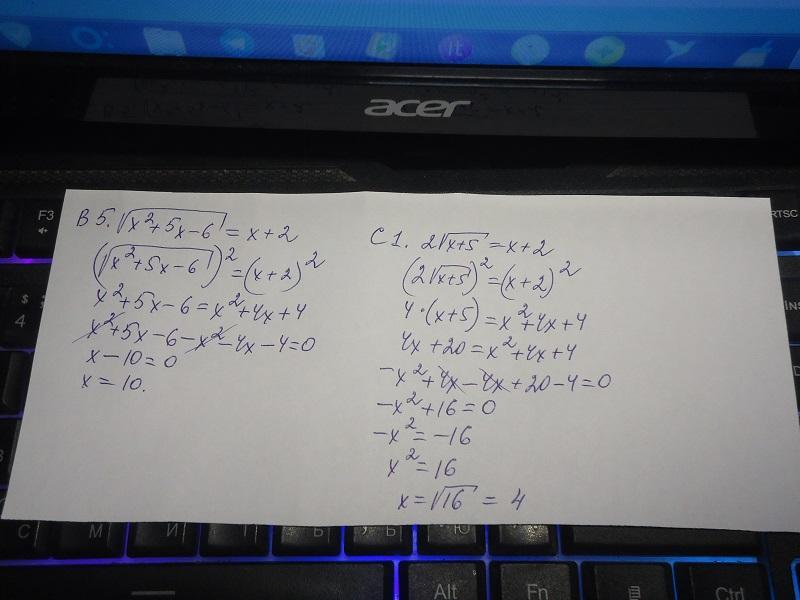 acer
F3
RTSC
INS
$
4
В 5. √(x²+5x-6) = x+2
(√(x²+5x-6))² = (x+2)²
x²+5x-6 = x²+4x+4
x²+5x-6-x²-4x-4=0
x-10=0
x=10.
С 1. 2√(x+5) = x+2
(2√(x+5))² = (x+2)²
4·(x+5) = x²+4x+4
4x+20 = x²+4x+4
-x²+4x-4x+20-4=0
-x²+16=0
-x²=-16
x²=16
x=√16 = 4
С М И Т Ь Б Ю
Alt Fn Ctrl